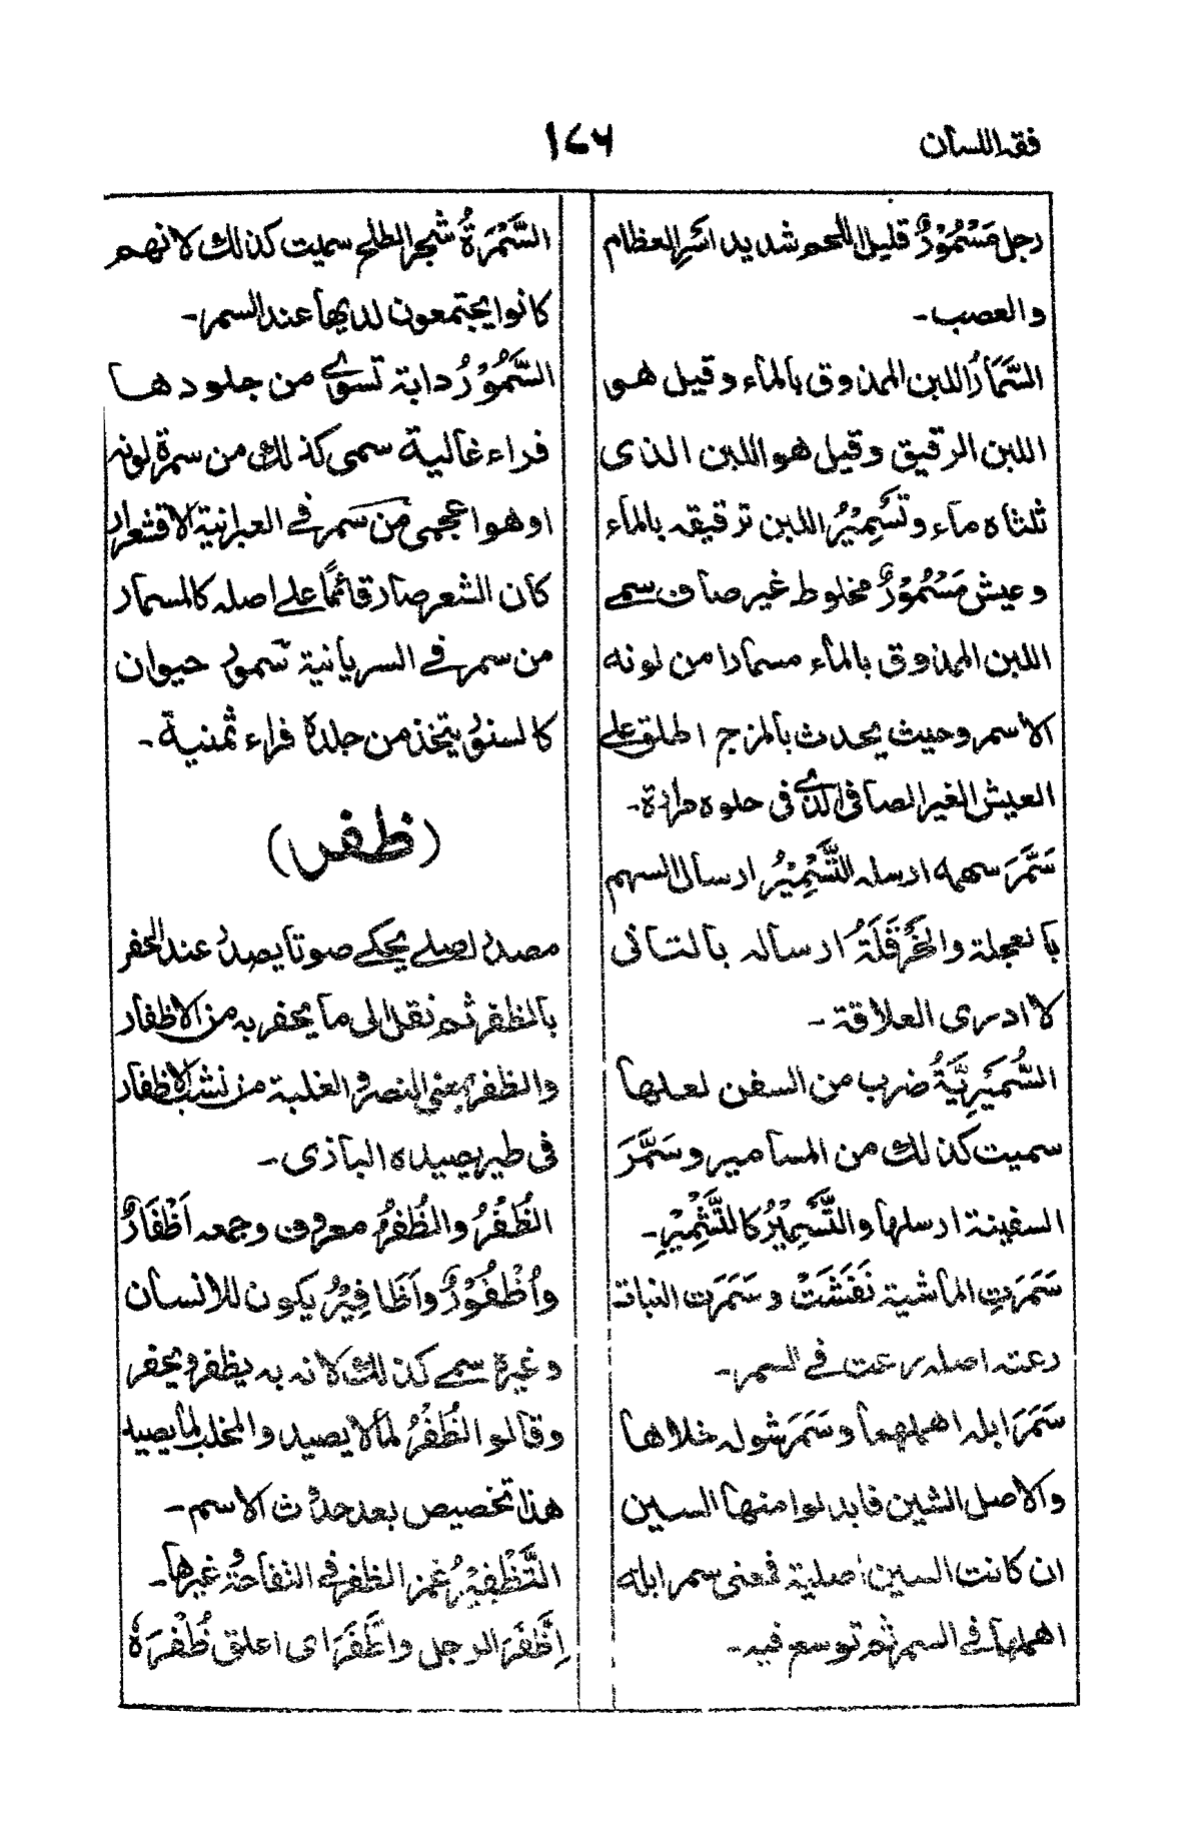 فقه اللسان
١٤٦
رجل مَسْمُوْرٌ قليل اللحم شديد اسر العظام
والعصب-
السَّمَارُ اللبن الممذوق بالماء وقيل هو
اللبن الرقيق وقيل هو اللبن الذى
ثلثاه ماء وتَسْمِيْرُ اللبن ترقيقه بالماء
وعيش مَسْمُوْرٌ مخلوط غير صاف سمى
اللبن الممذوق بالماء مسمارا من لونه
الاسمر وحيث يحدث بالمزج اطلق على
العيش الغير الصافى الذى فى حلوه
سَمَّرَ سهمه ارسله التَّسْمِيْرُ ارسال السهم
بالعجلة والخَرْقَلَةُ ارساله بالتانى
لا ادرى العلاقة-
السُّمَيْرِيَّةُ ضرب من السفن لعلها
سميت كذلك من المسامير وسَمَّرَ
السفينة ارسلها والتَّسْمِيْرُ كالتَّشْمِيْرِ-
سَمَرَتِ الماشية نَفَشَتْ وسَمَرَت النباتة
رعته اصله رعت فى السمر-
سَمَرَ ابله اهملها وسَمَرَ شوله خلاها
والاصل الشين فابدلوا منها السين
ان كانت السين اصلية فمعنى سمر ابله
اهملها فى السمر ثم توسع فيه-
السَّمُرَةُ شجر الطلح سميت كذلك لانهم
كانوا يجتمعون لديها عند السمر-
السَّمُّوْرُ دابة تسوى من جلودها
فراء غالية سمى كذلك من سمرة لونه
او هو اعجمى من سمر فى العبرانية الاقشعرار
كان الشعر صار قائمًا على اصله كالمسمار
من سمر فى السريانية سمور حيوان
كالسنور يتخذ من جلدة فراء ثمنية-
(ظفر)
مصدر اصلى يحكى صوتا يصدر عند الحفر
بالظفر ثم نقل الى ما يحفر به من الاظفار
والظفر بمعنى النصر والغلبة من نشب الاظفار
فى طير يصيده البازى-
الظُفُرُ والظُفْرُ معروف وجمعه اَظْفَارٌ
واُظْفُوْرٌ واَظَافِيْرُ يكون للانسان
وغيرة سمى كذلك لانه به يظفر ويحفر
وقالوا الظُفْرُ لما لا يصيد والمخلب لما يصيد
هذا تخصيص بعد حدوث الاسم-
التَّظْفِيْرُ غمز الظفر فى التفاحة وغيرها-
اِظَّفَرَ الرجل واطَّفَرَ اى اعلق ظُفْرَهٗ